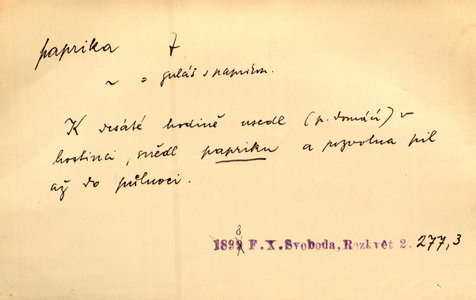 paprika f
~ = guláš s paprikou.
K desáté hodině usedl (p. domácí) v
hostinci, snědl papriku a pozvolna pil
až do půlnoci.
1898 F. X. Svoboda, Rozkvět 2. 277,3